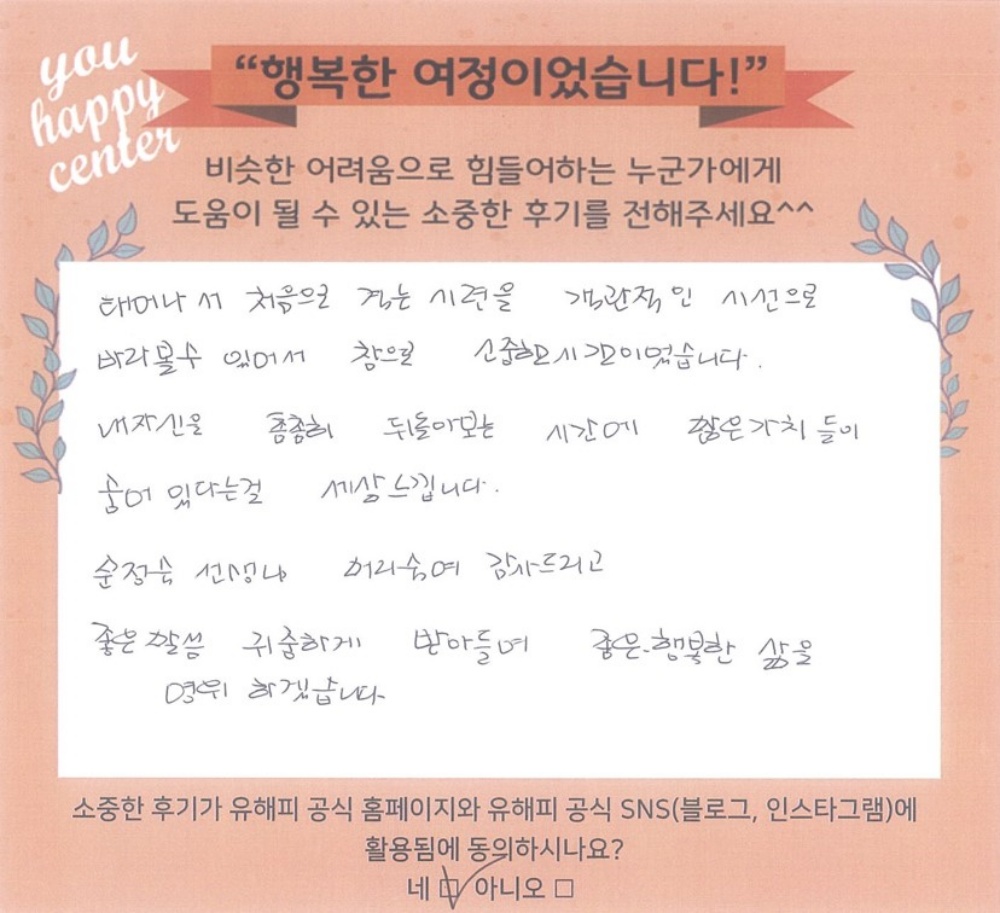 you
happy
center
“행복한 여정이었습니다!”
비슷한 어려움으로 힘들어하는 누군가에게
도움이 될 수 있는 소중한 후기를 전해주세요^^
태어나서 처음으로 겪는 시련을 객관적인 시선으로
바라볼수 있어서 참으로 소중한시간이었습니다.
내자신을 촘촘히 뒤돌아보는 시간에 많은가치들이
숨어 있다는걸 세삼느낍니다.
순정숙 선생님 머리숙여 감사드리고
좋은말씀 귀중하게 받아들여 좋은.행복한 삶을
영위 하겠습니다.
소중한 후기가 유해피 공식 홈페이지와 유해피 공식 SNS(블로그, 인스타그램)에
활용됨에 동의하시나요?
네 ☑ 아니오 □